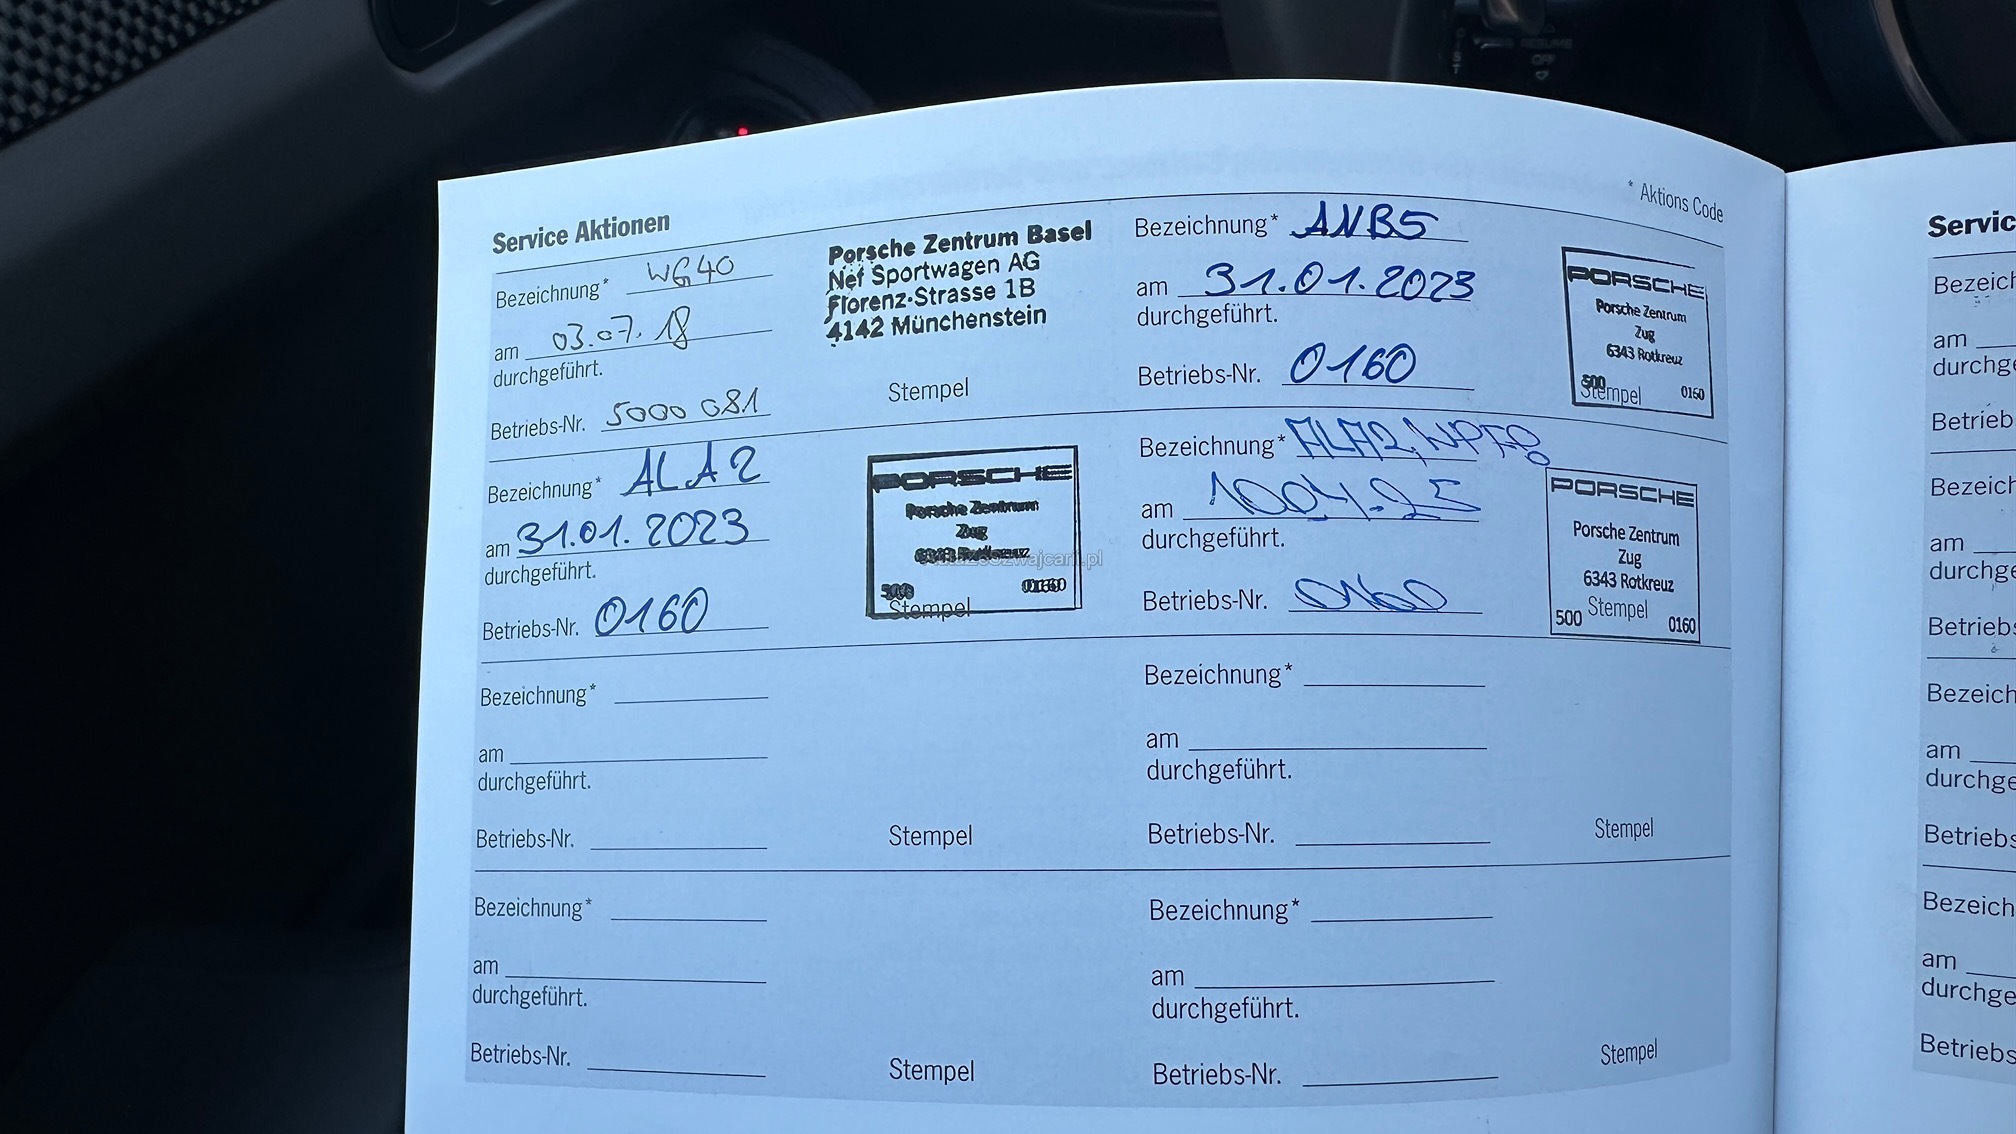 * Aktions Code
Service Aktionen
Bezeichnung* WG40
am 03.07.18
durchgeführt.
Betriebs-Nr. 5000 081
Porsche Zentrum Basel
Nef Sportwagen AG
Florenz-Strasse 1B
4142 Münchenstein
Stempel
Bezeichnung* ANB5
am 31.01.2023
durchgeführt.
Betriebs-Nr. 0160
PORSCHE
Porsche Zentrum
Zug
6343 Rotkreuz
500 0160
Stempel
Bezeichnung* ALA2
am 31.01.2023
durchgeführt.
Betriebs-Nr. 0160
PORSCHE
Porsche Zentrum
Zug
6343 Rotkreuz
500 0160
Stempel
Bezeichnung* ALA2,
am
durchgeführt.
Betriebs-Nr. 0160
PORSCHE
Porsche Zentrum
Zug
6343 Rotkreuz
Stempel
500 0160
Bezeichnung*
am
durchgeführt.
Betriebs-Nr.
Stempel
Bezeichnung*
am
durchgeführt.
Betriebs-Nr.
Stempel
Bezeichnung*
am
durchgeführt.
Betriebs-Nr.
Stempel
Bezeichnung*
am
durchgeführt.
Betriebs-Nr.
Stempel
Servic
Bezeich
am
durchge
Betrieb
Bezeich
am
durchge
Betriebs
Bezeich
am
durchge
Betriebs
Bezeich
am
durchge
Betriebs
RESUME
OFF